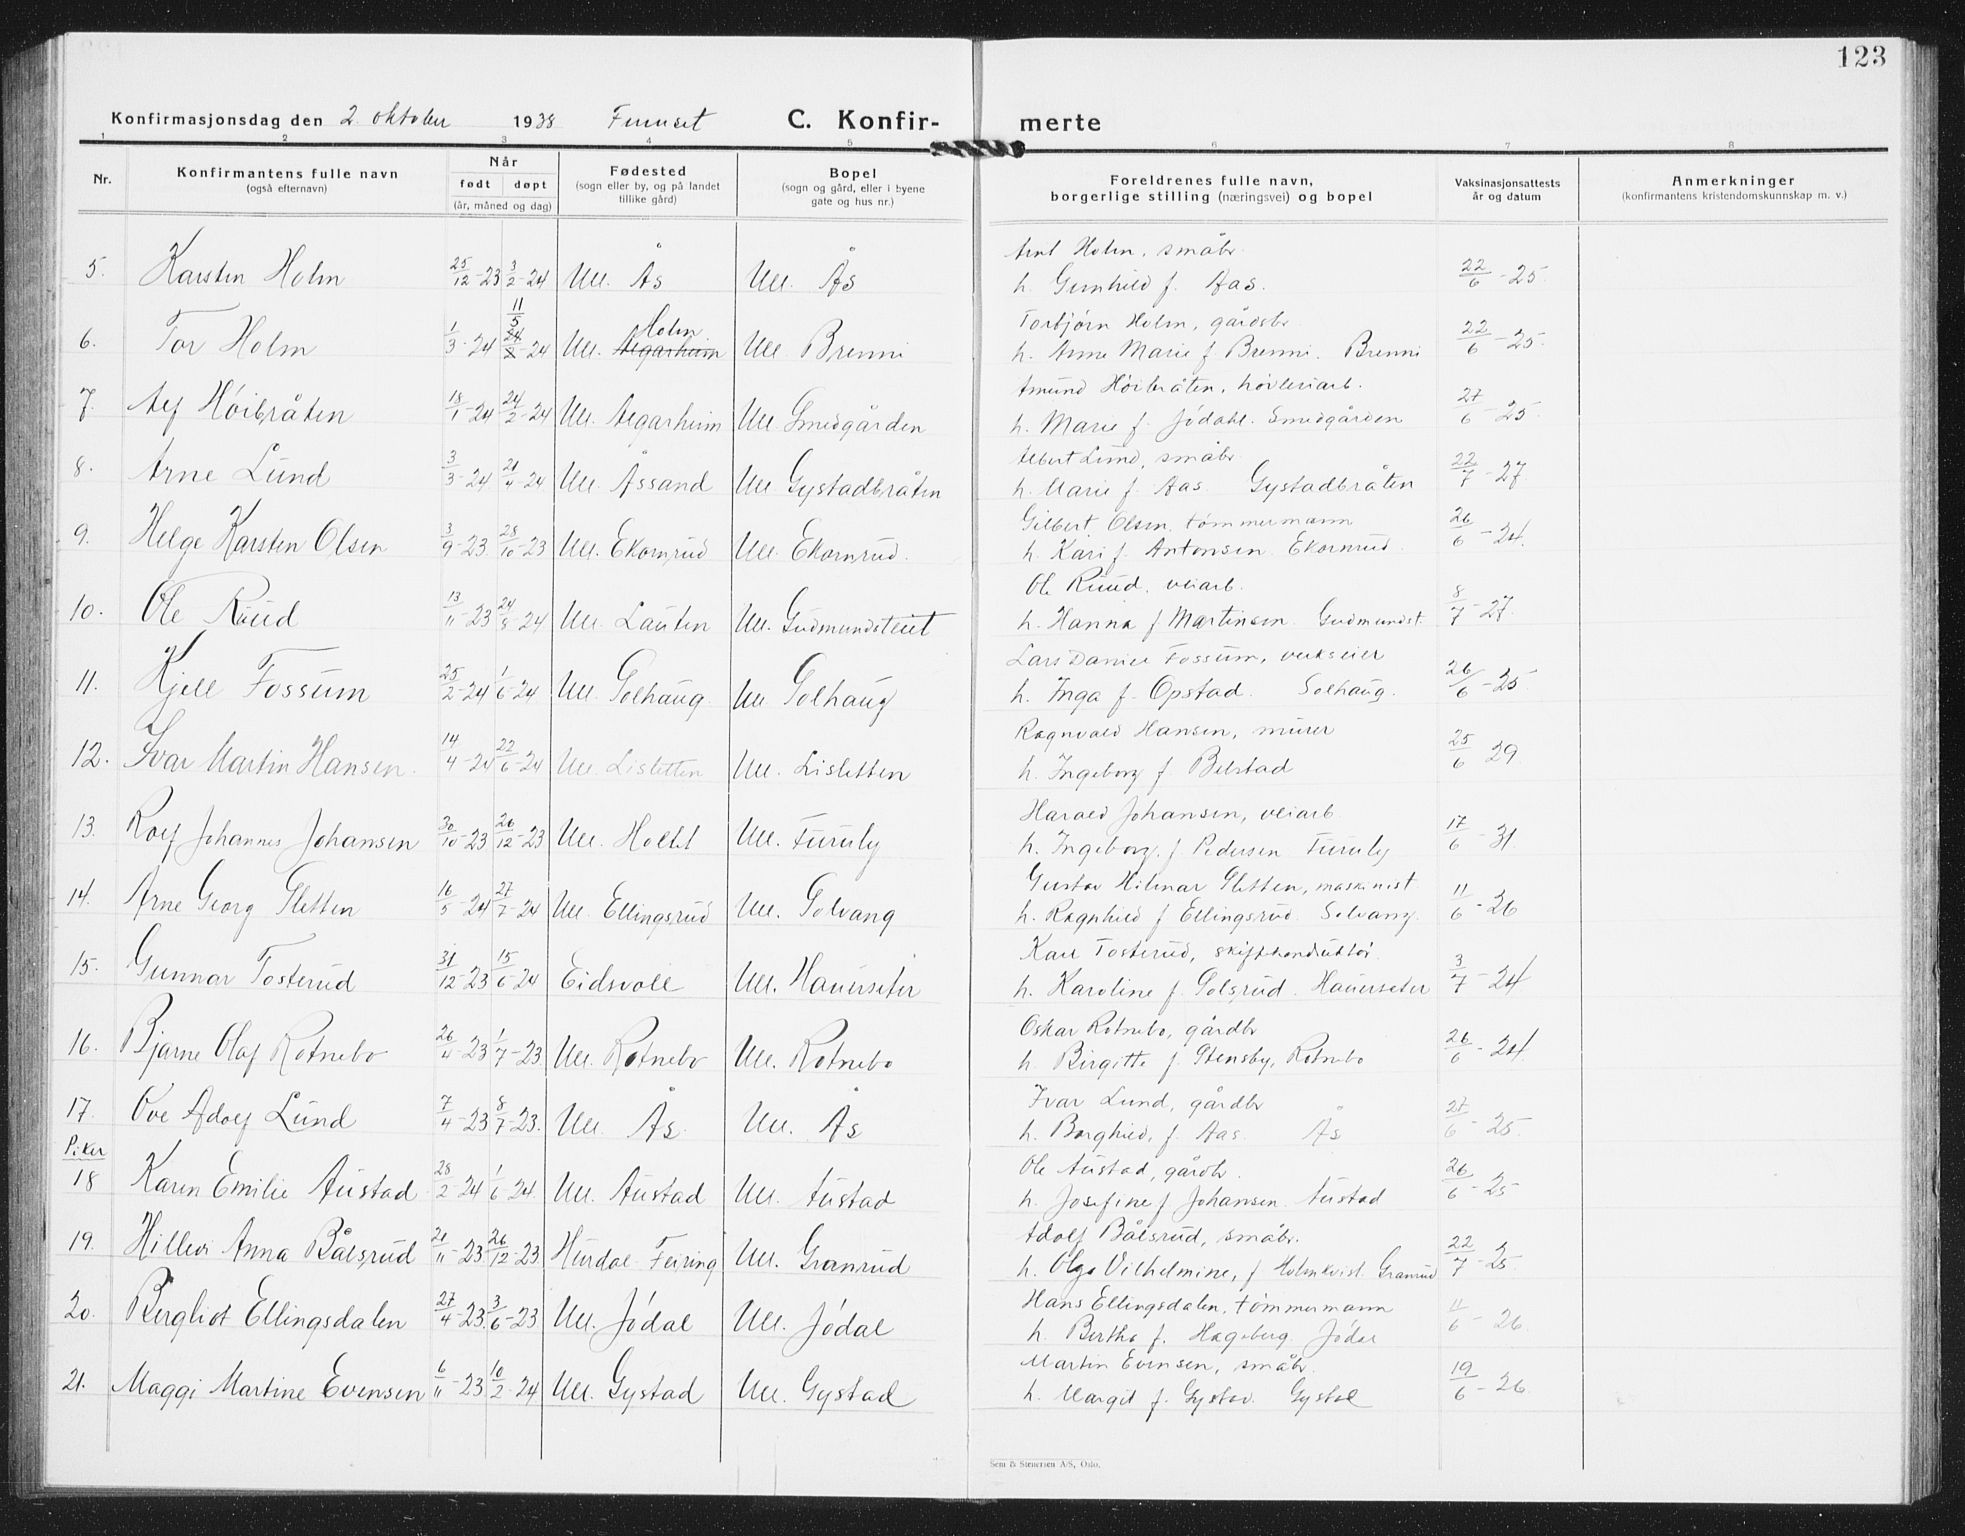 123
Konfirmasjonsdag den 2. oktober 1938 Furuset C. Konfir- merte
1 2 3 4 5 6 7 8
Nr.
Konfirmantens fulle navn
(også efternavn)
Når
født døpt
(år, måned og dag)
Fødested
(sogn eller by, og på landet
tillike gård)
Bopel
(sogn og gård, eller i byene
gate og hus nr.)
Foreldrenes fulle navn,
borgerlige stilling (næringsvei) og bopel
Vaksinasjonsattests
år og datum
Anmerkninger
(konfirmantens kristendomskunnskap m. v.)
Arnt Holm, småbr.
5. Karsten Holm 25/12-23 3/2-24 Ull. Ås Ull. Ås h. Gunhild f. Aas. 22/6-25.
11/5 Holm Torbjørn Holm, gårdbr.
6. Tor Holm 1/3-24 24/8-24 Ull. Algarheim Ull. Brenni h. Anne Marie f. Brenni. Brenni 22/6-25.
Amund Høibråten, høvleriarb.
7. Alf Høibråten 18/1-24 24/2-24 Ull. Algarheim Ull. Smedgården h. Marie f. Jødahl. Smedgården 27/6-25.
Albert Lund, småbr.
8. Arne Lund 3/3-24 21/4-24 Ull. Åssand Ull. Gystadbråten h. Marie f. Aas. Gystadbråten 22/7-27.
Gilbert Olsen, tømmermann
9. Helge Karsten Olsen 3/9-23 28/10-23 Ull. Ekornrud Ull. Ekornrud. h. Kari f. Antonsen. Ekornrud. 26/6-24.
Ole Ruud, veiarb.
10. Ole Ruud 13/11-23 24/8-24 Ull. Lauten Ull. Gudmundsteiet h. Hanna f Martinsen. Gudmundst. 8/7-27.
Lars Daniel Fossum, verkseier
11. Kjell Fossum 25/2-24 1/6-24 Ull. Solhaug. Ull Solhaug h. Inga f. Opstad. Solhaug. 26/6-25.
Ragnvald Hansen, murer
12. Ivar Martin Hansen. 14/4-24 22/6-24 Ull. Lisletten Ull. Lisletten h. Ingeborg f. Belstad 25/6 29
Harald Johansen, veiarb.
13. Rolf Johannes Johansen 30/10-23 26/12-23 Ull. Holtet Ull. Furuly h. Ingeborg. f. Pedersen Furuly 17/6-31.
Gustav Hilmar Sletten, maskinist
14. Arne Georg Sletten 16/5-24 27/7-24 Ull. Ellingsrud Ull. Solvang h. Ragnhild f Ellingsrud. Solvang. 11/6-26
Karl Tosterud,
15. Gunnar Tosterud 31/12-23 15/6-24 Eidsvoll Ull. Hauerseter h. Karoline f. Solsrud. Hauerseter 3/7-24
Oskar Rotnebo, gårdbr
16. Bjarne Olaf Rotnebo 26/4-23 1/7-23. Ull. Rotnebo Ull. Rotnebo h. Birgitte f. Stensby, Rotnebo 26/6-24.
Ivar Lund, gårdbr
17. Ove Adolf Lund 7/4-23 8/7-23. Ull. Ås. Ull. Ås h. Borghild, f. Aas. Ås 27/6-25.
Piker
Ole Austad, gårdbr.
18 Karen Emilie Austad 28/2-24 1/6-24. Ull. Austad Ull. Austad h. Josefine f Johansen. Austad 26/6-25
Adolf Bålsrud, småbr.
19. Hillevi Anna Bålsrud 21/11-23 26/12-23. Hurdal Feiring Ull. Granrud h. Olga Vilhelmine, f Holmkvist. Granrud 22/7-25.
Hans Ellingsdalen, tømmermann
20. Bergliot Ellingsdalen 27/4-23. 3/6-23 Ull. Jødal Ull. Jødal h. Bertha f. Hageberg. Jødal 11/6-26.
Martin Evensen, småbr.
21. Maggi Martine Evensen 6/11-23 10/2-24 Ull. Gystad Ull. Gystad h. Margit f. Gystad. Gystad 19/6-26.
Sem & Stenersen A/S, Oslo.